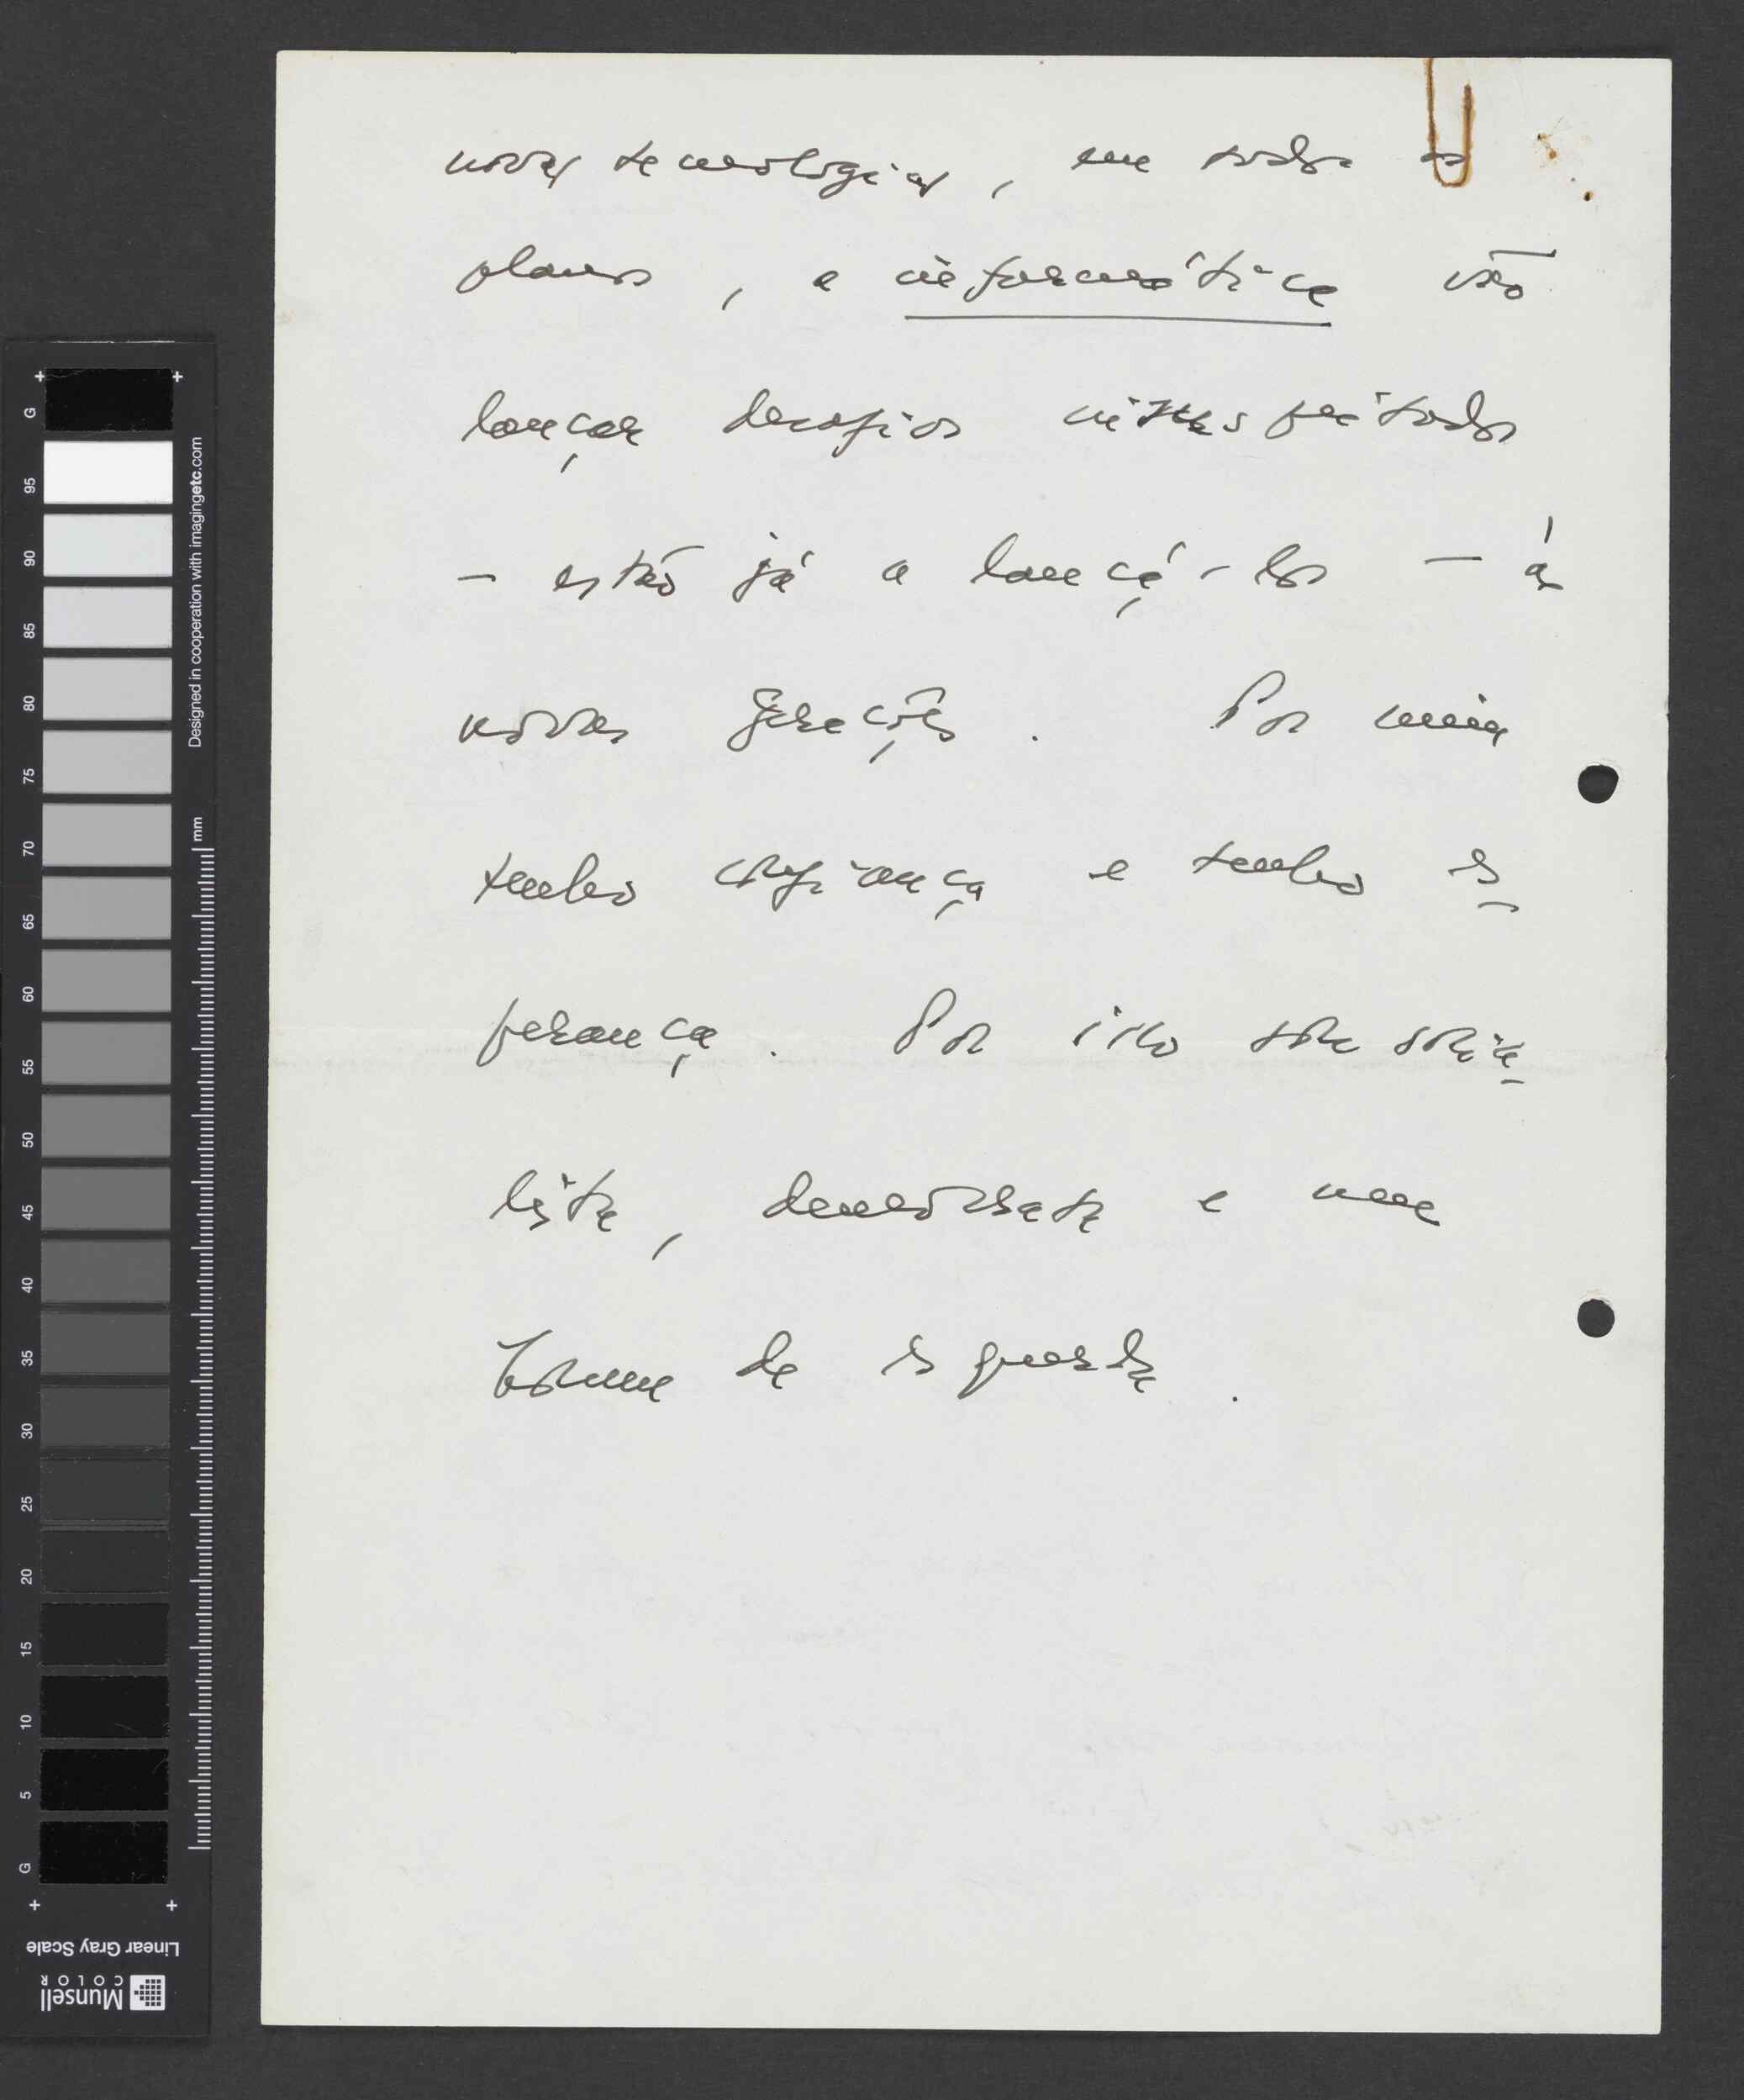 novas tecnologias, em todos os
planos, e informática vão
lançar desafios insuspeitados
– estão já a lançá-los – às
novas gerações. Por mim
tenho confiança e tenho es-
perança. Por isso sou socia-
lista, democrata e um
homem de esquerda.
G
95
90
85
80
75
70
65
60
55
50
45
40
35
30
25
20
15
10
5
G
Designed in cooperation with imagingetc.com
mm
Linear Gray Scale
Munsell
COLOR